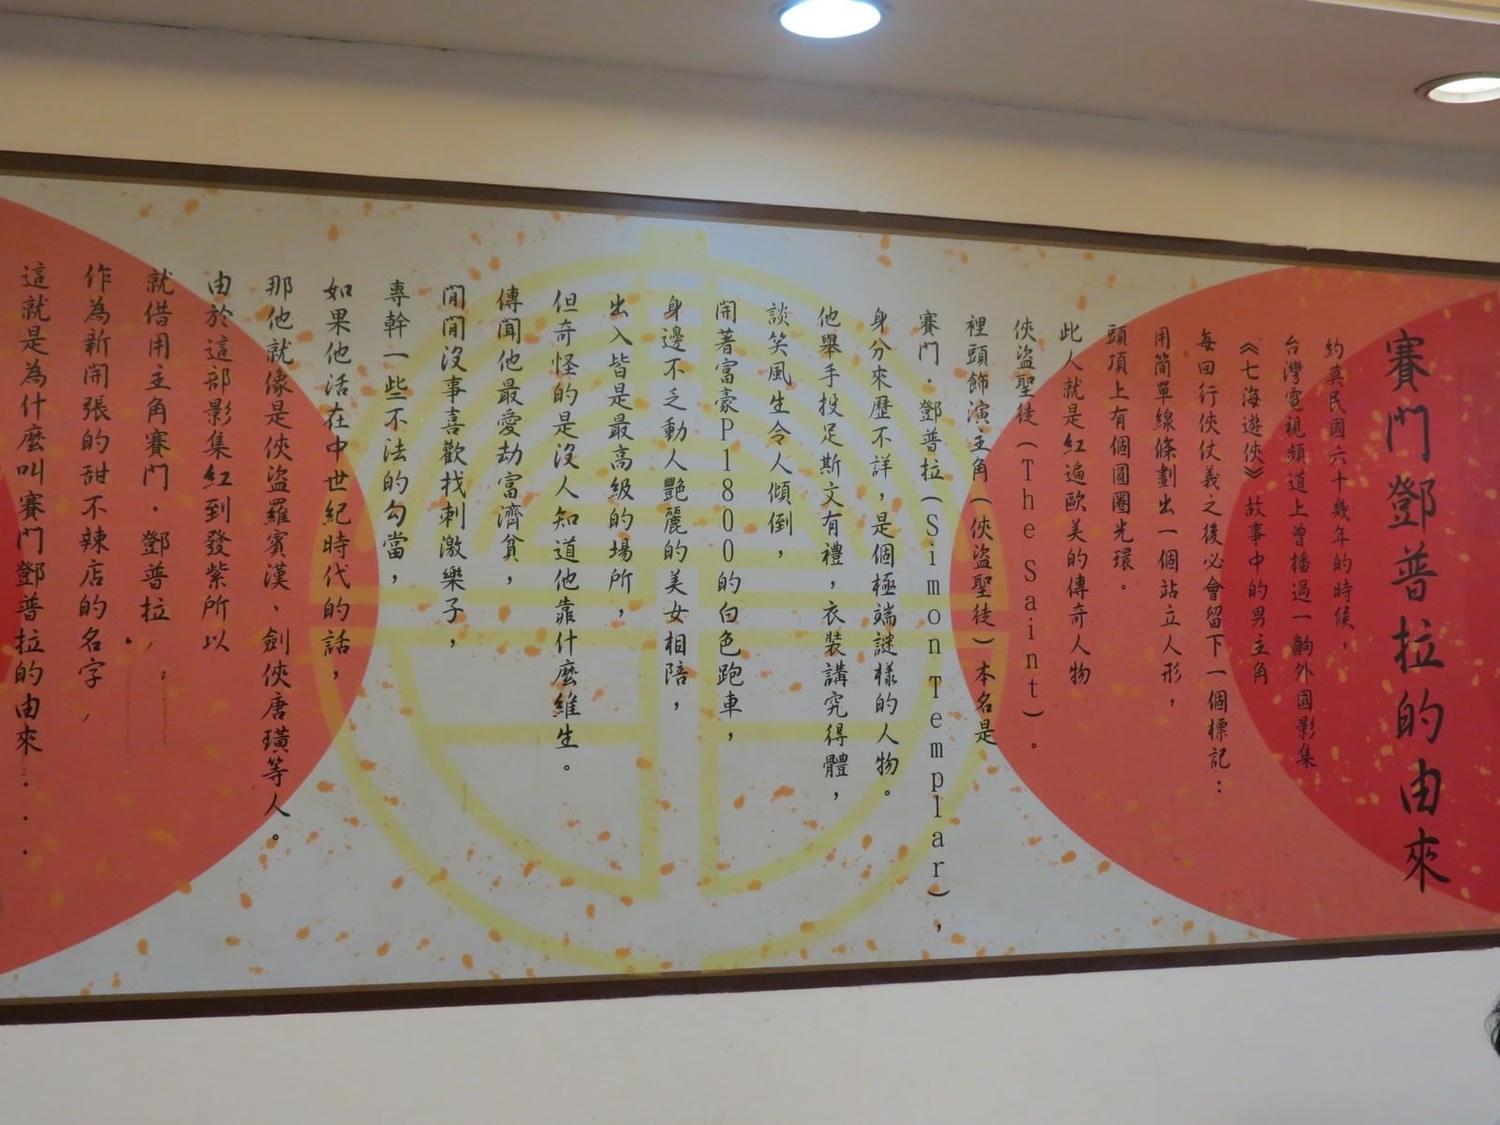 賽門鄧普拉的由來
約莫民國六十幾年的時候，
台灣電視頻道上曾播過一齣外國影集
《七海遊俠》故事中的男主角
每回行俠仗義之後必會留下一個標記：
用簡單線條劃出一個站立人形，
頭頂上有個圓圈光環。
此人就是紅遍歐美的傳奇人物
俠盜聖徒（The Saint）。
裡頭飾演主角（俠盜聖徒）本名是
賽門．鄧普拉（Simon Templar），
身分來歷不詳，是個極端謎樣的人物。
他舉手投足斯文有禮，衣裝講究得體，
談笑風生令人傾倒，
開著富豪P1800的白色跑車，
身邊不乏動人艷麗的美女相陪，
出入皆是最高級的場所，
但奇怪的是沒人知道他靠什麼維生。
傳聞他最愛劫富濟貧，
閒閒沒事喜歡找刺激樂子，
專幹一些不法的勾當，
如果他活在中世紀時代的話，
那他就像是俠盜羅賓漢、劍俠唐璜等人。
由於這部影集紅到發紫所以
就借用主角賽門．鄧普拉，
作為新開張的甜不辣店的名字，
這就是為什麼叫賽門鄧普拉的由來....